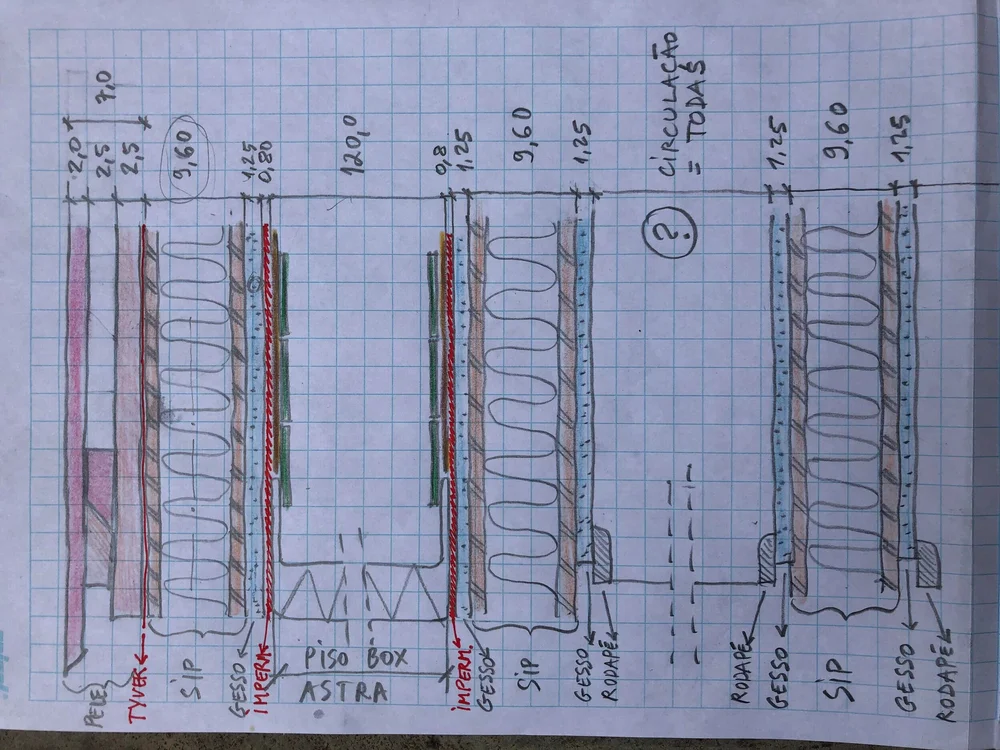 2,0
2,5
2,5
7,0
9,60
1,25
0,80
120,0
0,8
1,25
9,60
1,25
CIRCULAÇÃO
= TODAS
?
1,25
9,60
1,25
PELE
TYVEK
SIP
GESSO
IMPERM.
PISO BOX
ASTRA
IMPERM.
GESSO
SIP
GESSO
RODAPÉ
RODAPÉ
GESSO
SIP
GESSO
RODAPÉ